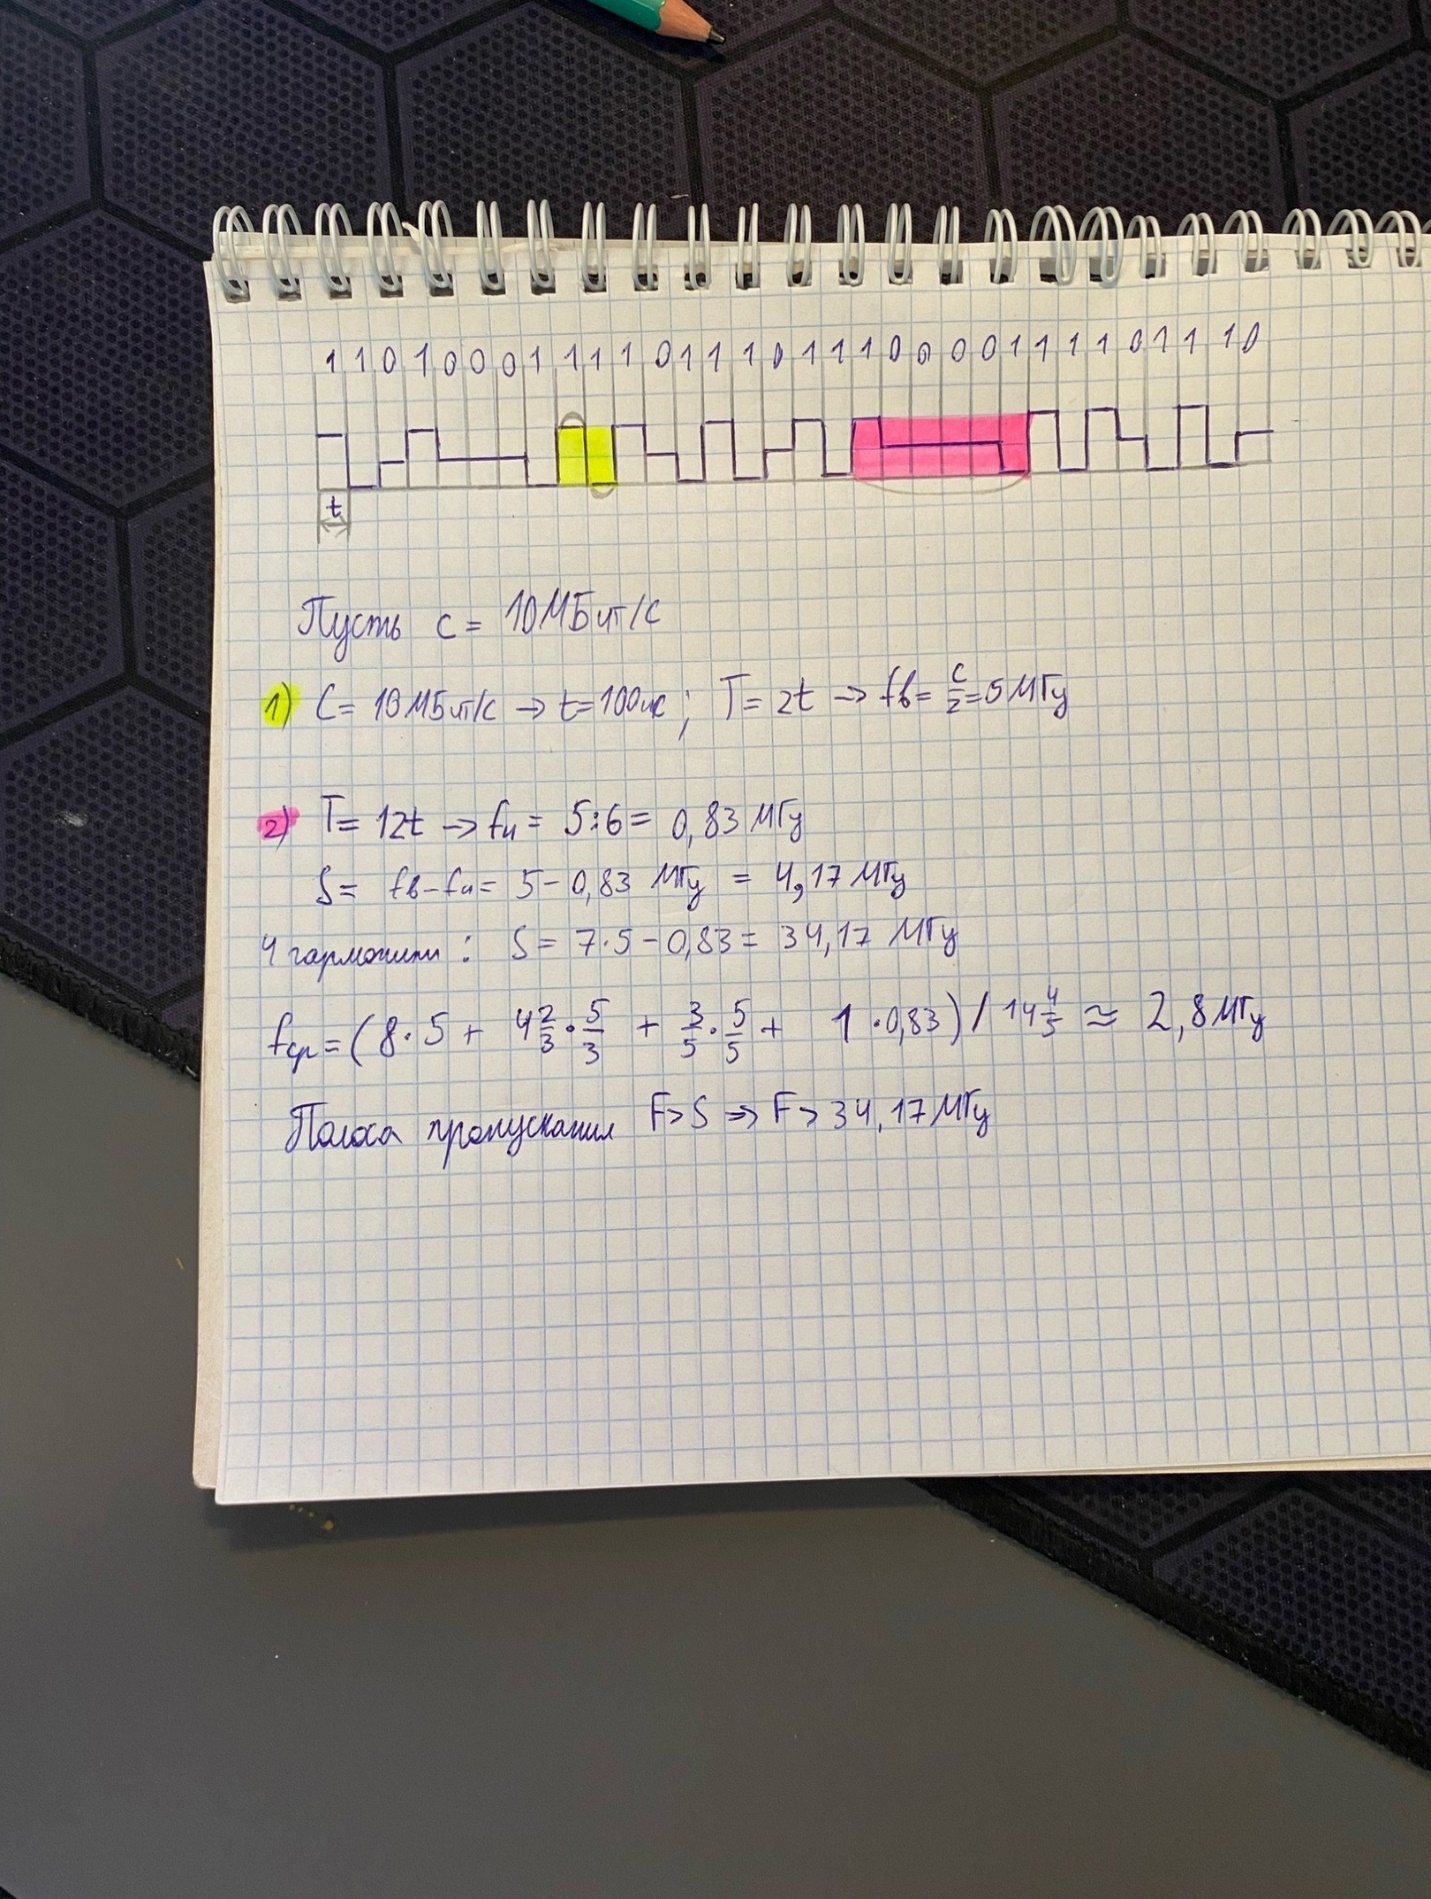 1 1 0 1 0 0 0 1 1 1 1 0 1 1 1 0 1 1 1 0 0 0 0 1 1 1 1 0 1 1 1 0
t
Пусть c = 10 МБит/с
1) C = 10 МБит/с → t = 100нс ; T = 2t → fв = c/2 = 5 МГц
2) T = 12t → fн = 5:6 = 0,83 МГц
S = fв - fн = 5 - 0,83 МГц = 4,17 МГц
4 гармоники : S = 7·5 - 0,83 = 34,17 МГц
fср = (8·5 + 4 2/3 · 5/3 + 3/5 · 5/5 + 1·0,83) / 14 4/5 ≈ 2,8 МГц
Полоса пропускания F > S ⇒ F > 34,17 МГц